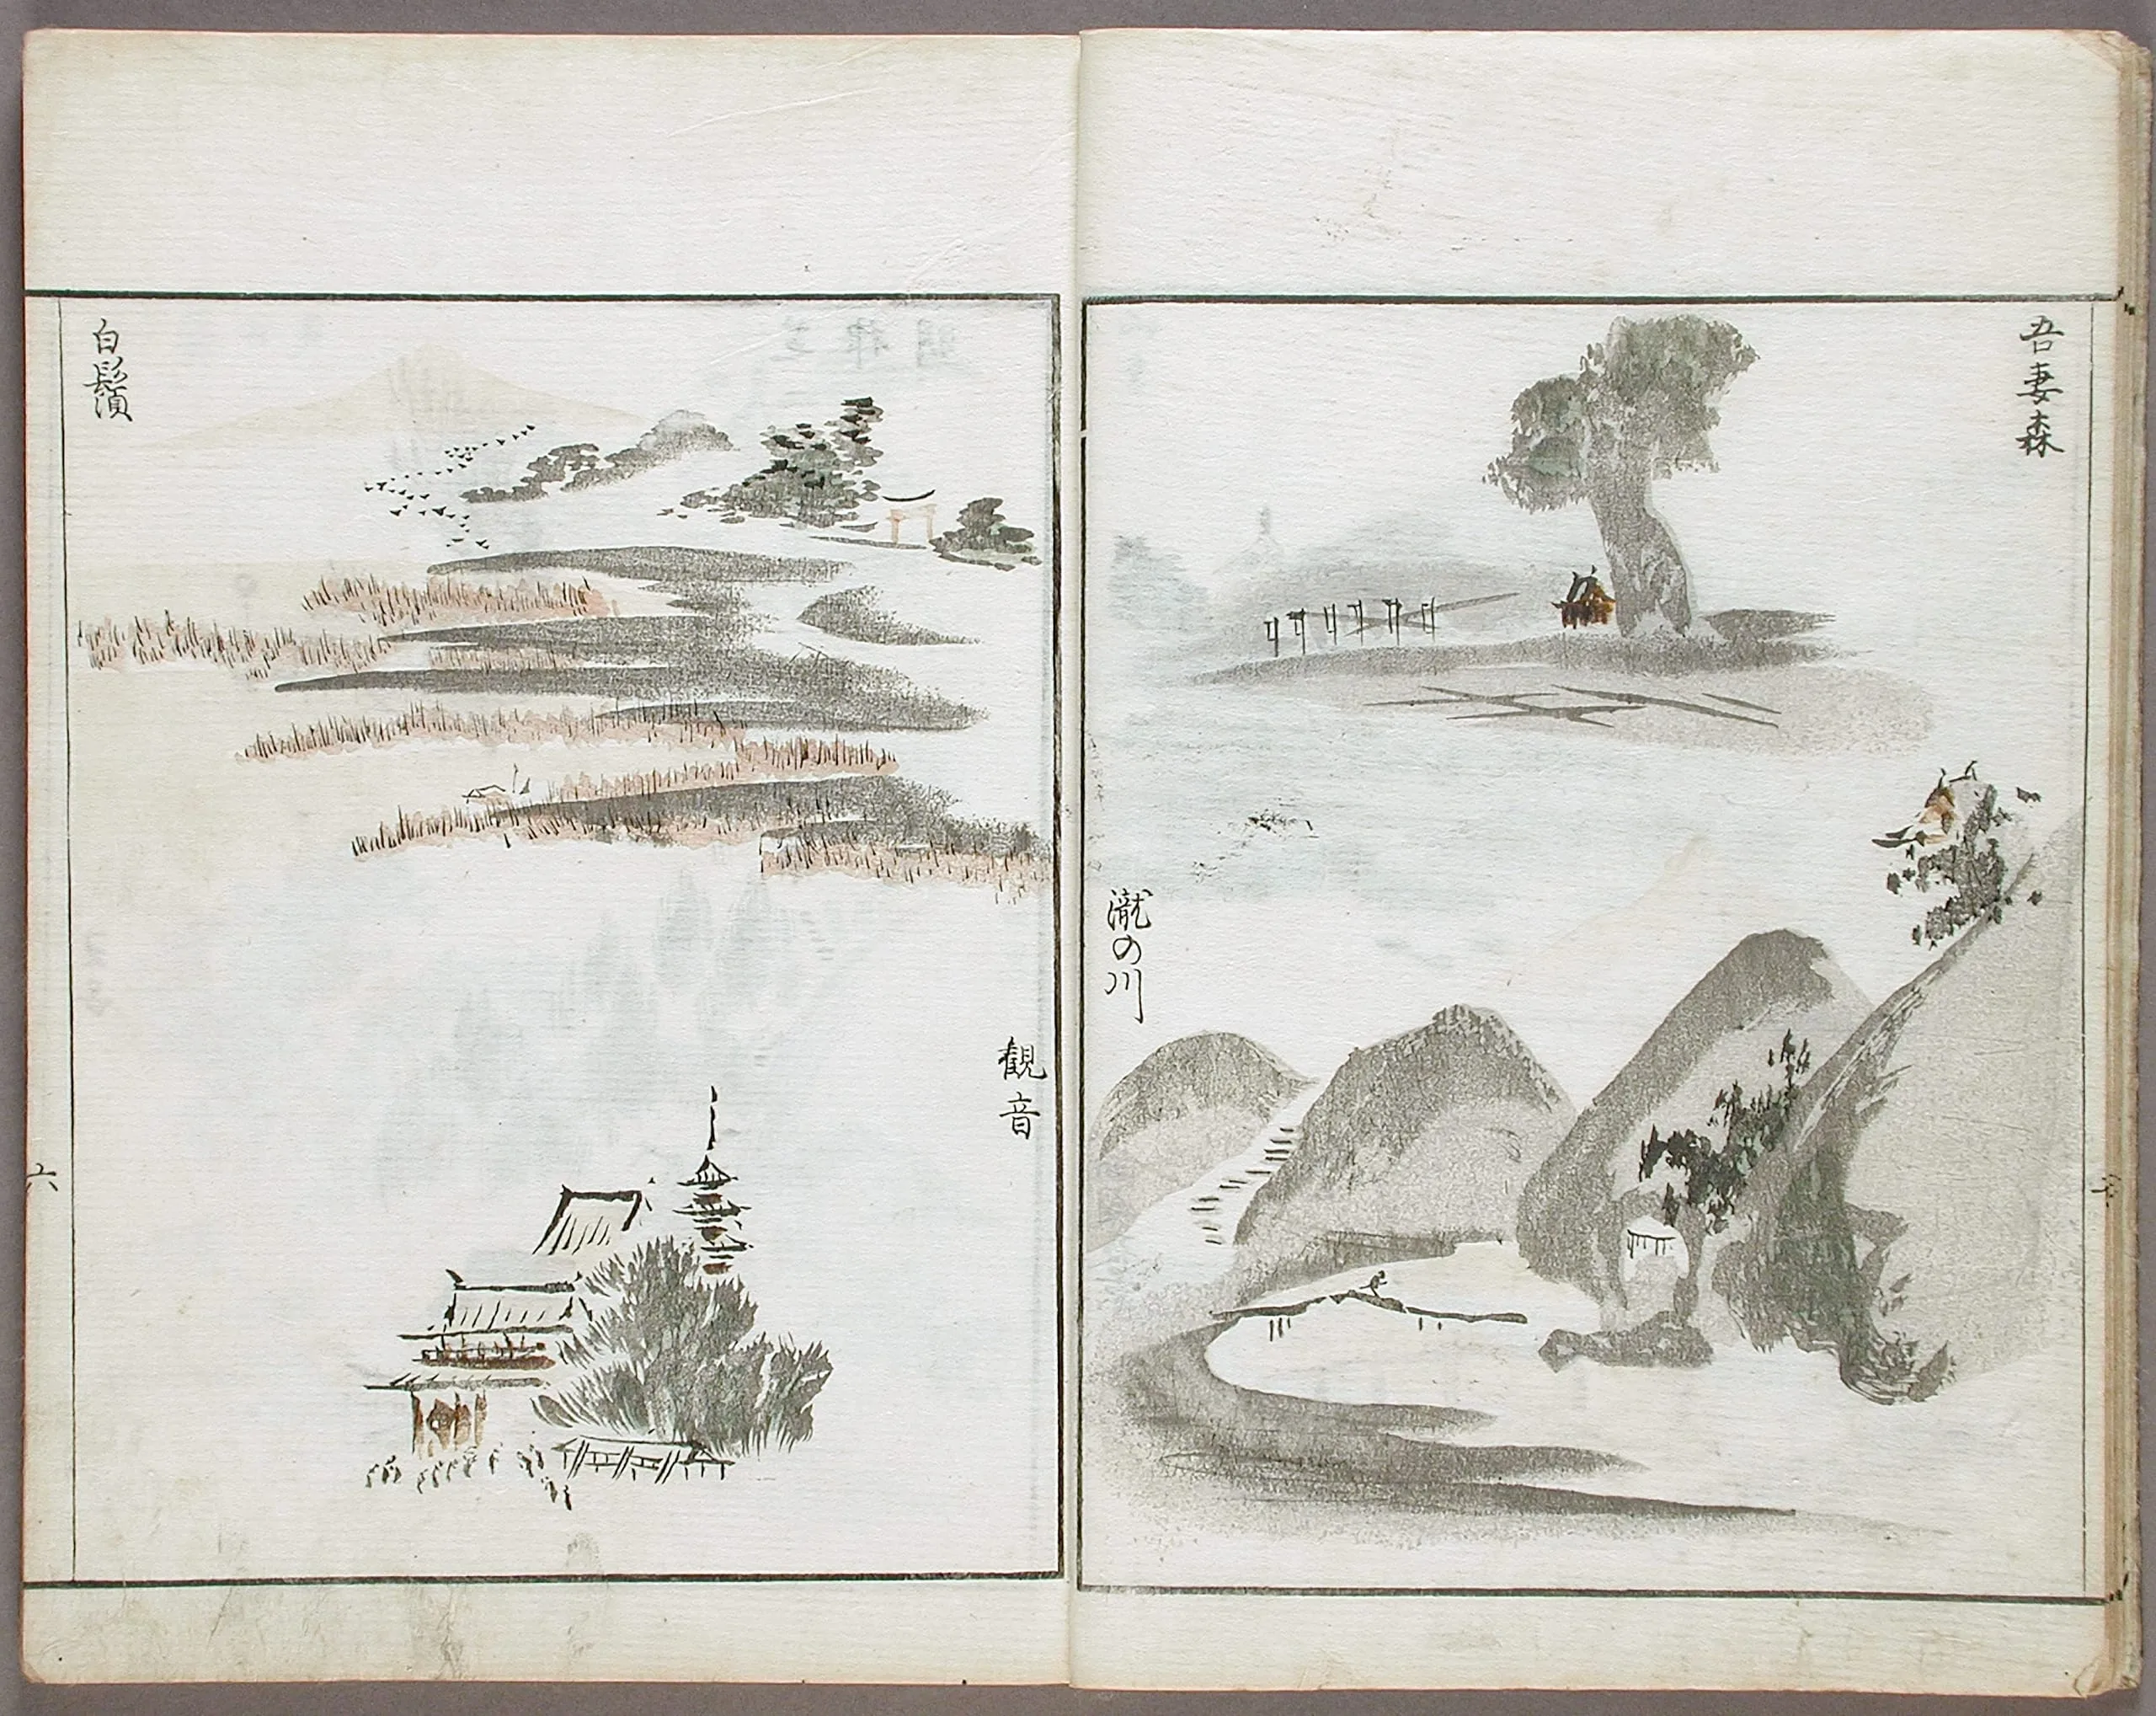 吾妻森
瀧の川
観音
白鬚
六